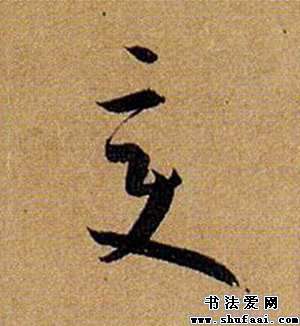 亥
书法爱网
www.shufaai.com